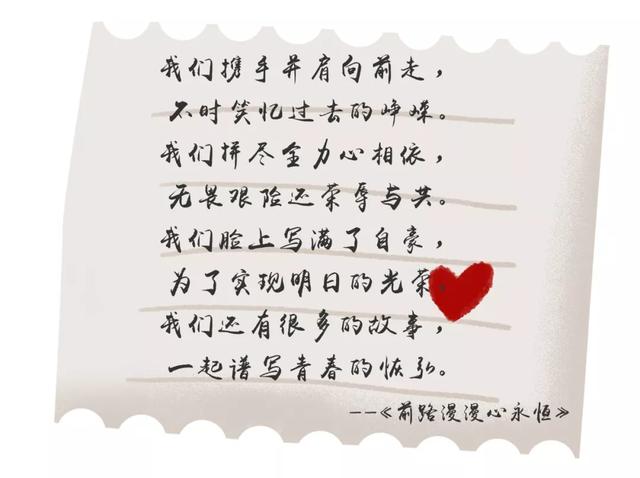 我们携手并肩向前走，
不时笑忆过去的峥嵘。
我们拼尽全力心相依，
无畏艰险还荣辱与共。
我们脸上写满了自豪，
为了实现明日的光荣。
我们还有很多的故事，
一起谱写青春的恢弘。
--《前路漫漫心永恒》